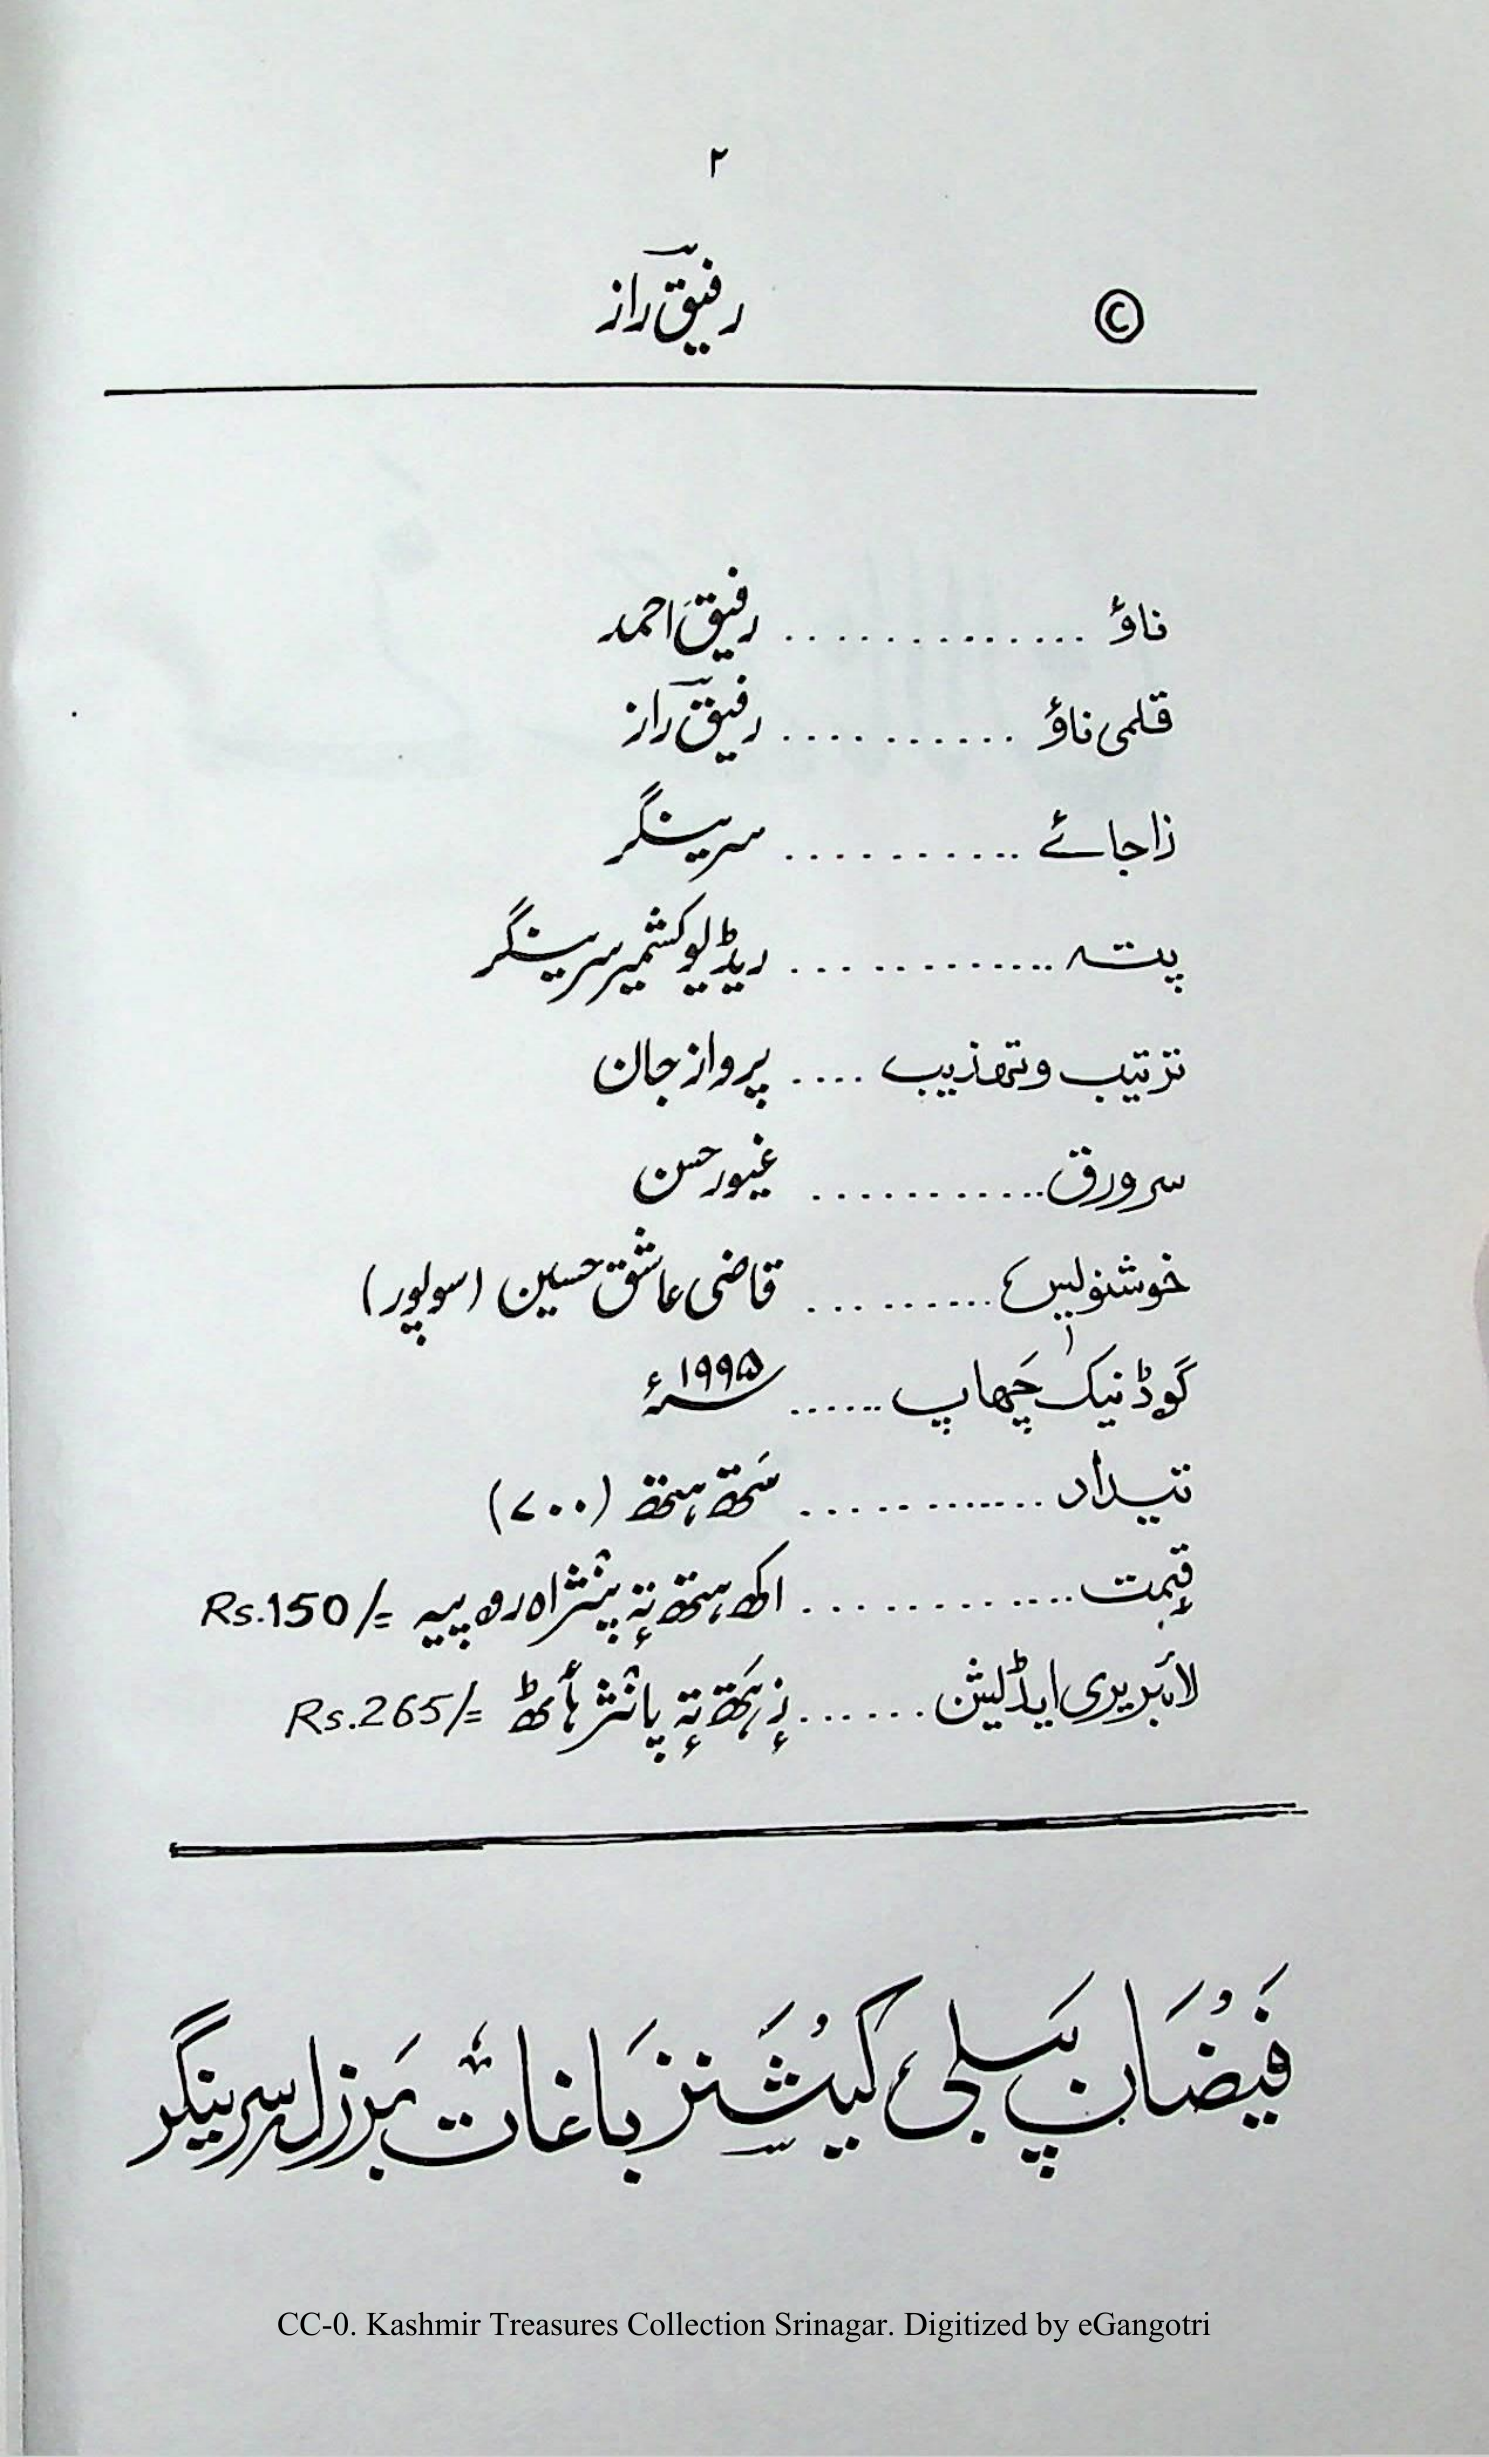 ۲
© رفیق راز
ناؤ .............. رفیق احمد
قلمی ناؤ .......... رفیق راز
زاجائے ........... سرینگر
پتہ ............. ریڈیو کشمیر سرینگر
ترتیب و تہذیب .... پرواز جان
سرورق ........... غیور حسن
خوشنویس .......... قاضی عاشق حسین (سوپور)
گوڈنیک چھاپ ...... ۱۹۹۵ء
تیداد ............ ستھ ہتھ (۷۰۰)
قیمت ............. اکھ ہتھ تہٕ پنژاہ روپیہ Rs.150/=
لائبریری ایڈیشن ...... زٕ ہتھ تہٕ پانژ ہٲٹھ Rs.265/=
فیضان پبلی کیشنز باغات برزلہ سرینگر
CC-0. Kashmir Treasures Collection Srinagar. Digitized by eGangotri